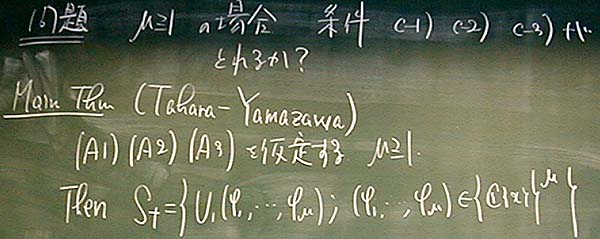 問題 μ≧1 の場合 条件 c-1) c-2) c-3)
とれるか?
Main Thm (Tahara-Yamazawa)
(A1) (A2) (A3) を仮定する μ≧1.
Then S₊={U(φ₁,…,φμ); (φ₁,…,φμ)∈{C{x}}^μ}